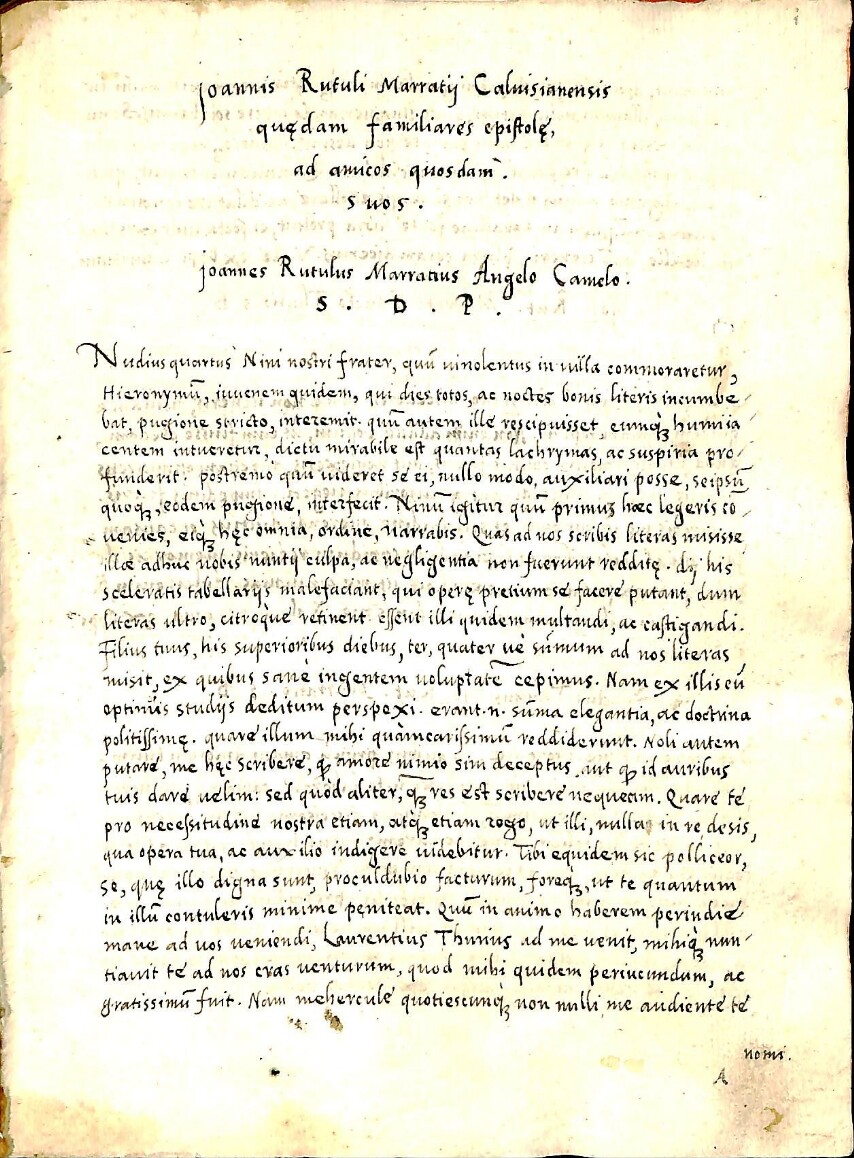 Joannis Rutuli Marratij Caluisianensis
quędam familiares epistolę,
ad amicos quosdam̀.
suos.
Joannes Rutulus Marratius Angelo Camelo.
S. D. P.
Nudiusquartus Nini nostri frater, quū uinolentus in uilla commoraretur,
Hieronymū, iuuenem quidem, qui dies totos, ac noctes bonis literis incumbe-
bat, pugione stricto, interemit. quū autem ille rescipuisset, eumq; humi ia-
centem intueretur, dictu mirabile est quantas lachrymas, ac suspiria pro-
funderit. postremò quū uideret se ei, nullo modo, auxiliari posse, seipsū,
quoq;, eodem pugione, interfecit. Ninū igitur quū primùm hæc legeris cō-
uenies, eiq; hęc omnia, ordine, narrabis. Quas ad nos scribis literas misisse
illæ adhuc nobis nuntij culpa, ac negligentia non fuerunt redditę. dij his
sceleratis tabellarijs malefaciant, qui operę pretium se facere putant, dum
literas ultro, citroque retinent essent illi quidem multandi, ac castigandi.
Filius tuus, his superioribus diebus, ter, quater uè sūmum ad nos literas
misit, ex quibus sanè ingentem uoluptatē cepimus. Nam ex illis eū
optimis studijs deditum perspexi. erant.n. sūma elegantia, ac doctrina
politissimę. quare illum mihi quàmcarissimū reddiderunt. Noli autem
putare, me hęc scribere, q amore nimio sim deceptus, aut q id auribus
tuis dare uelim: sed quòd aliter, q; res est scribere nequeam. Quare te
pro necessitudine nostra etiam, atq; etiam rogo, ut illi, nulla in re desis,
qua opera tua, ac auxilio indigere uidebitur. Tibi equidem sic polliceor,
se, quę illo digna sunt, proculdubio facturum, foreq;, ut te quantum
in illū contuleris minime peniteat. Quū in animo haberem perindie
mane ad uos ueniendi, Laurentius Thurius ad me uenit, mihiq; nun-
tiauit te ad nos cras uenturum, quod mihi quidem periucundum, ac
gratissimū fuit. Nam mehercule quotiescunq; non nulli me audiente te
nomi.
A